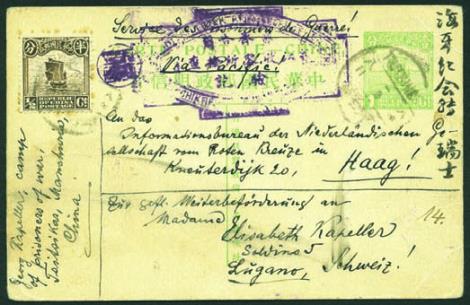 Service des prisonniers de Guerre!
CARTE POSTALE - CHINE
Via Pacific!
中華民國郵政明信片
半 分
REPUBLIC
OF CHINA
POSTAGE
1/2 Ct
An das
Informationsbureau der Niederländischen
Gesellschaft vom Roten Kreuze in
Kneuterdijk 20, Haag!
Zur gefl. Weiterbeförderung an
Madame
Elisabeth Kapeller
Soldino 5
Lugano, Schweiz!
14.
Georg Kapeller, camp
of prisoners of war,
Tsitsikar, Manchuria,
China
瑞士